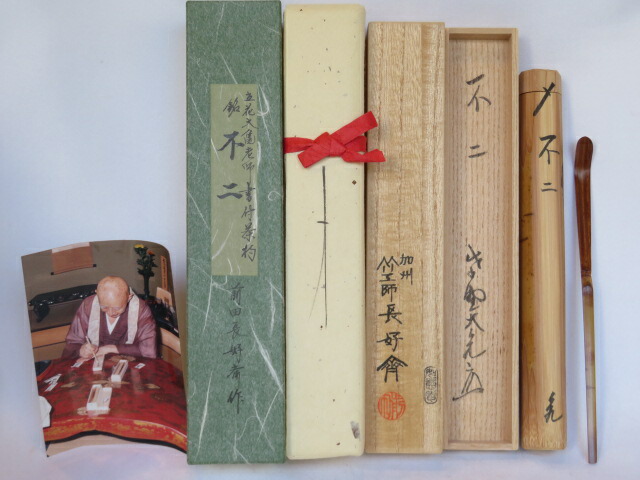 立花大亀老師 書付茶杓
銘 不二
前田長好斎作
加州
竹工師 長好齋
不二
〆 不二